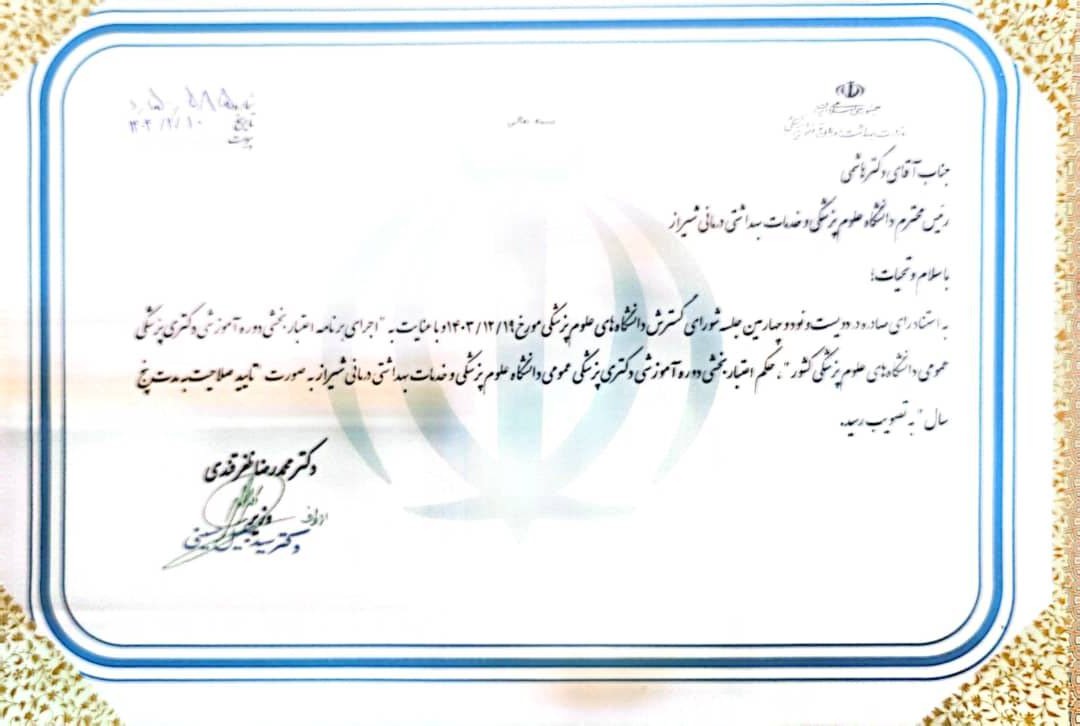 جمهوری اسلامی ایران
وزارت بهداشت، درمان و آموزش پزشکی
بسمه تعالی
شماره
تاریخ
پیوست
جناب آقای دکتر هاشمی
رئیس محترم دانشگاه علوم پزشکی و خدمات بهداشتی درمانی شیراز
با سلام و تحیات؛
به استناد رای صادره در دویست و نود و چهارمین جلسه شورای گسترش دانشگاه های علوم پزشکی مورخ ۱۴۰۳/۱۲/۱۹ و با عنایت به "اجرای برنامه اعتبار بخشی دوره آموزشی دکتری پزشکی
عمومی دانشگاه های علوم پزشکی کشور"، حکم اعتبار بخشی دوره آموزشی دکتری پزشکی عمومی دانشگاه علوم پزشکی و خدمات بهداشتی درمانی شیراز به صورت "تایید صلاحیت به مدت پنج
سال" به تصویب رسید.
دکتر محمد رضا ظفرقندی
وزیر
از طرف
دکتر سید جلیل حسینی